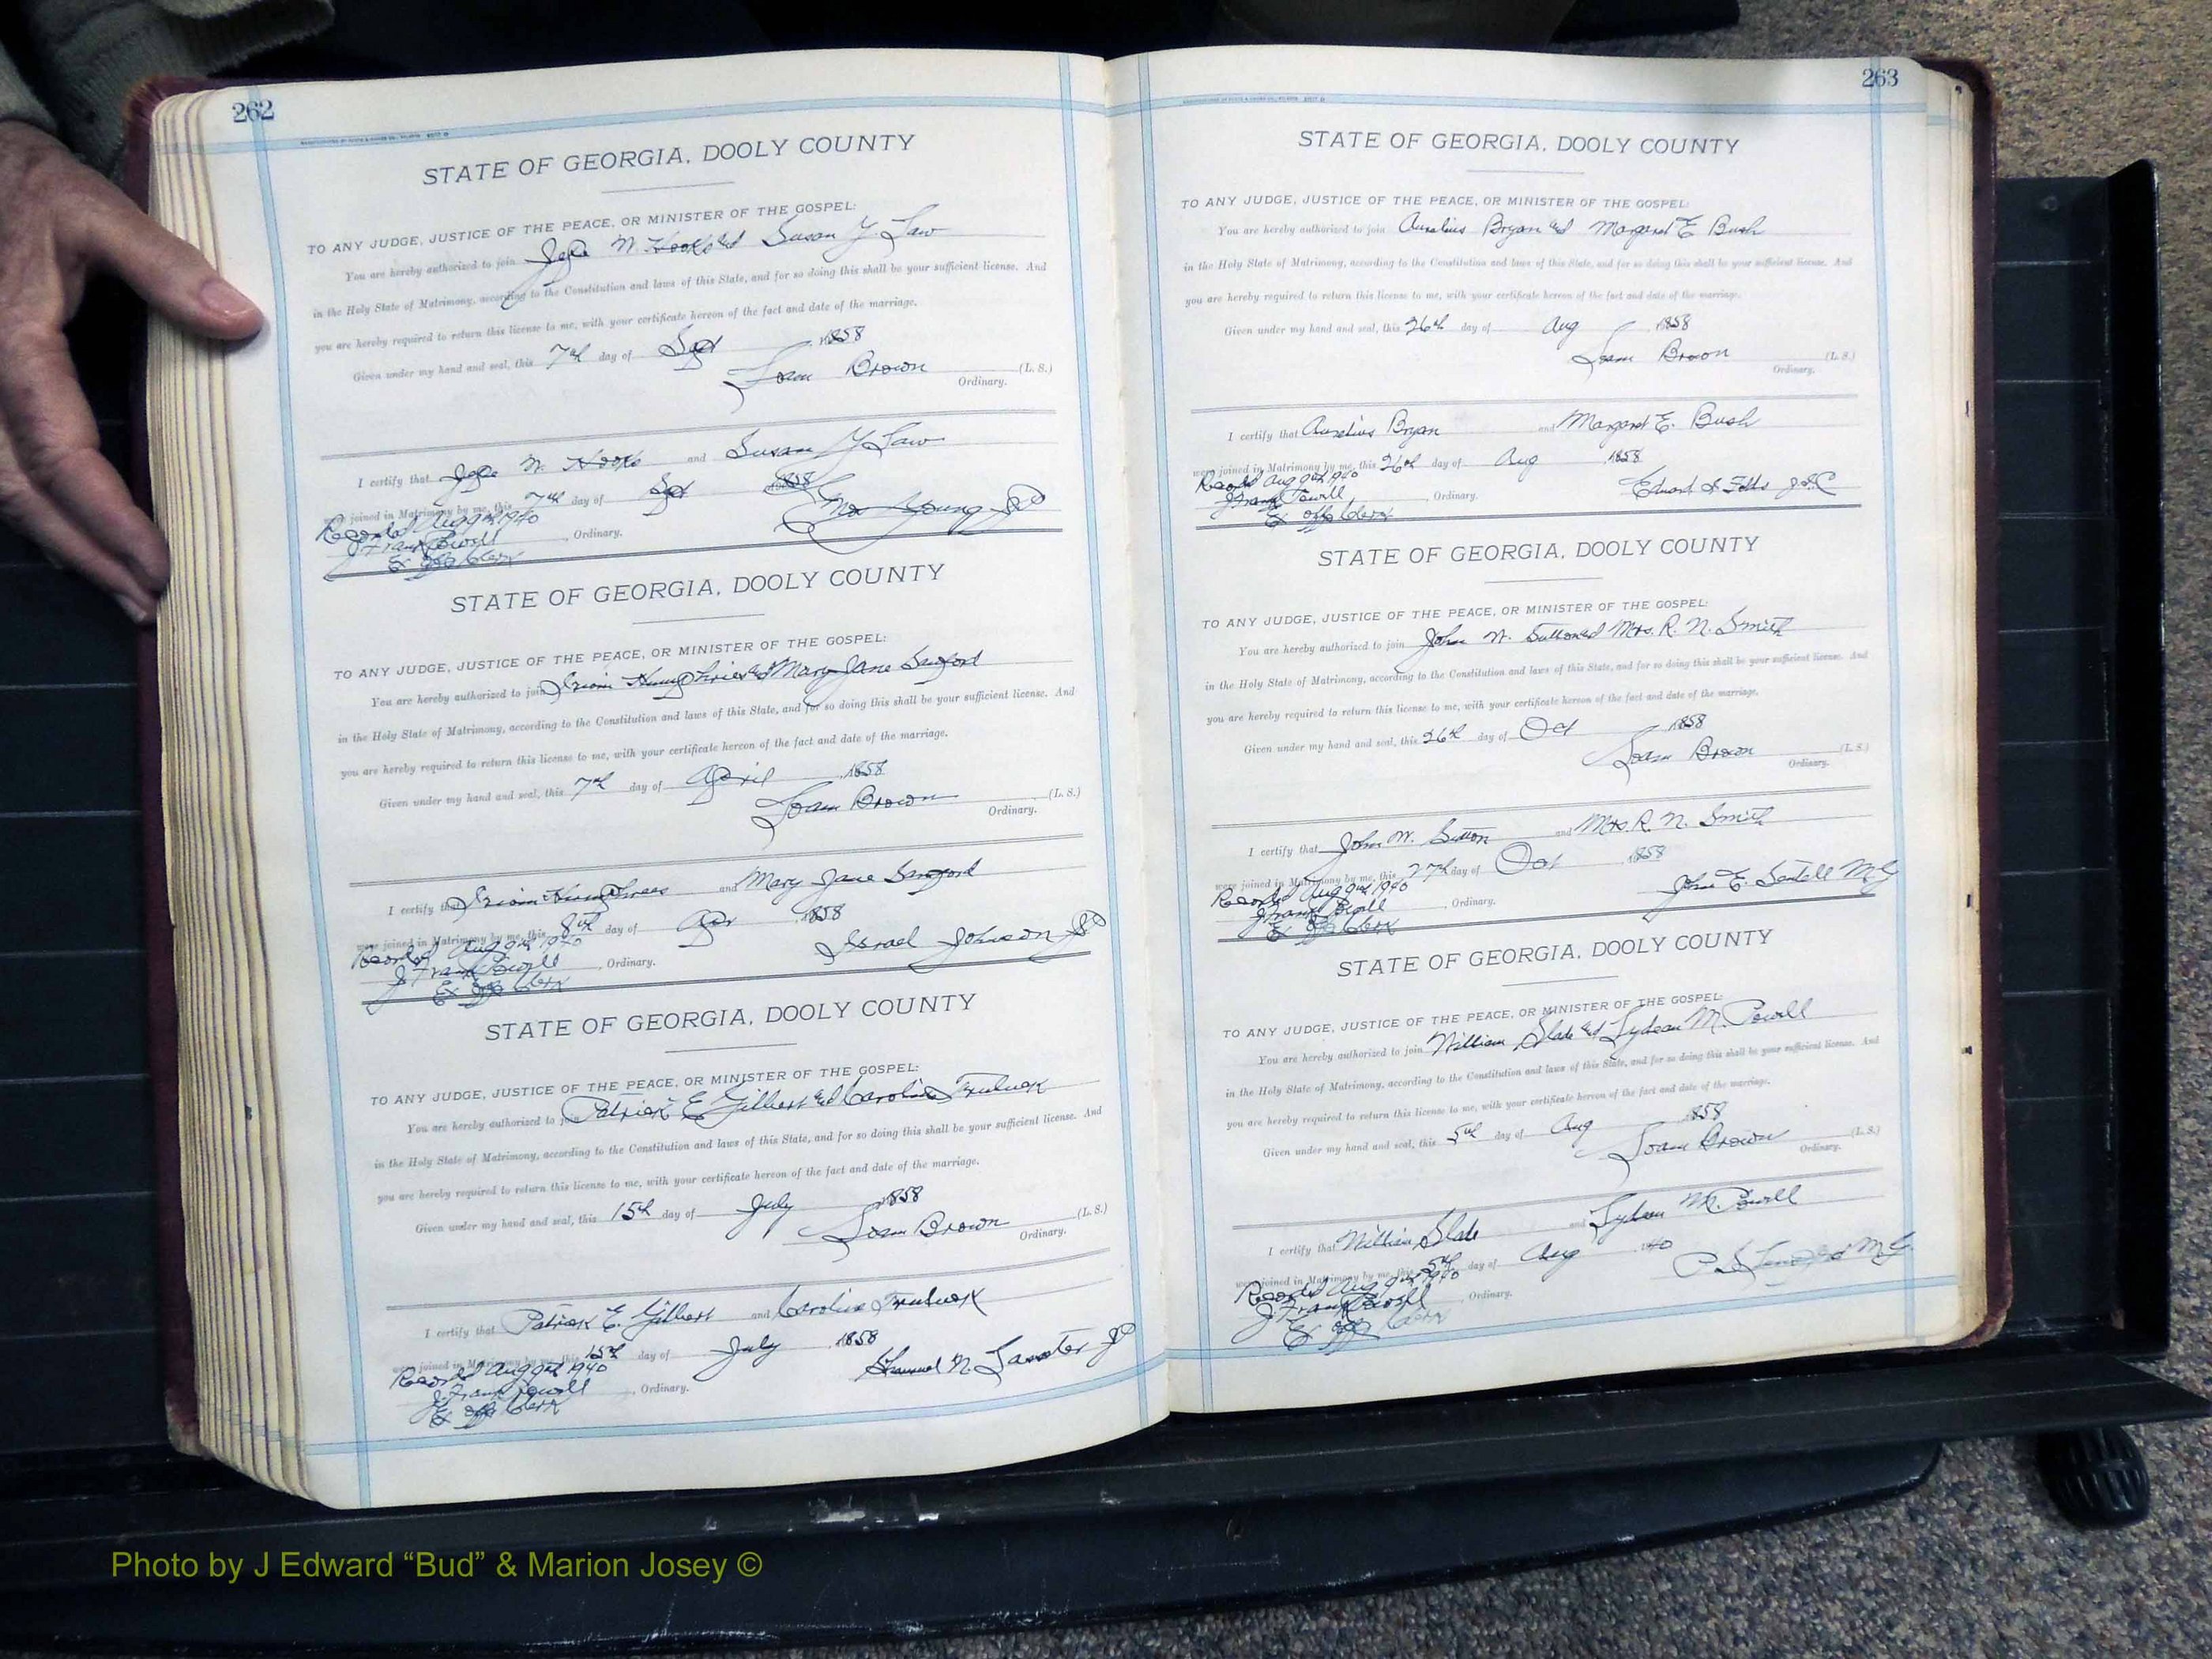 262
STATE OF GEORGIA, DOOLY COUNTY
TO ANY JUDGE, JUSTICE OF THE PEACE, OR MINISTER OF THE GOSPEL:
You are hereby authorized to join Jesse W. Hooks and Susan Y. Law
in the Holy State of Matrimony, according to the Constitution and laws of this State, and for so doing this shall be your sufficient license. And
you are hereby required to return this license to me, with your certificate hereon of the fact and date of the marriage.
Given under my hand and seal, this 7th day of Sept 1858
Brown (L. S.)
Ordinary.
I certify that Jesse W. Hooks and Susan Y Law
were joined in Matrimony by me, this 7th day of Sept 1858
Young JP
Recorded Aug 9th 1940
J. Frank Powell , Ordinary.
Ex offo Clerk
STATE OF GEORGIA, DOOLY COUNTY
TO ANY JUDGE, JUSTICE OF THE PEACE, OR MINISTER OF THE GOSPEL:
You are hereby authorized to join Mary Jane
in the Holy State of Matrimony, according to the Constitution and laws of this State, and for so doing this shall be your sufficient license. And
you are hereby required to return this license to me, with your certificate hereon of the fact and date of the marriage.
Given under my hand and seal, this 7th day of April 1858
Brown (L. S.)
Ordinary.
I certify that and Mary Jane
were joined in Matrimony by me, this 8th day of Apr 1858
Israel Johnson JP
Recorded Aug 9th 1940
J Frank Powell , Ordinary.
Ex offo Clerk
STATE OF GEORGIA, DOOLY COUNTY
TO ANY JUDGE, JUSTICE OF THE PEACE, OR MINISTER OF THE GOSPEL:
You are hereby authorized to join Patrick E Gilbert and Caroline
in the Holy State of Matrimony, according to the Constitution and laws of this State, and for so doing this shall be your sufficient license. And
you are hereby required to return this license to me, with your certificate hereon of the fact and date of the marriage.
Given under my hand and seal, this 15th day of July 1858
Brown (L. S.)
Ordinary.
I certify that Patrick E. Gilbert and Caroline
were joined in Matrimony by me, this 15th day of July 1858
Samuel JP
Recorded Aug 9th 1940
J. Frank Powell , Ordinary.
Ex offo Clerk
263
STATE OF GEORGIA, DOOLY COUNTY
TO ANY JUDGE, JUSTICE OF THE PEACE, OR MINISTER OF THE GOSPEL:
You are hereby authorized to join Aurelius Bryan and Margaret E Bush
in the Holy State of Matrimony, according to the Constitution and laws of this State, and for so doing this shall be your sufficient license. And
you are hereby required to return this license to me, with your certificate hereon of the fact and date of the marriage.
Given under my hand and seal, this 26th day of Aug 1858
Brown (L. S.)
Ordinary.
I certify that Aurelius Bryan and Margaret E. Bush
were joined in Matrimony by me, this 26th day of Aug 1858
Recorded Aug 9th 1940
J Frank Powell , Ordinary.
Ex offo Clerk
STATE OF GEORGIA, DOOLY COUNTY
TO ANY JUDGE, JUSTICE OF THE PEACE, OR MINISTER OF THE GOSPEL:
You are hereby authorized to join John W. Sutton and Mrs. R. N. Smith
in the Holy State of Matrimony, according to the Constitution and laws of this State, and for so doing this shall be your sufficient license. And
you are hereby required to return this license to me, with your certificate hereon of the fact and date of the marriage.
Given under my hand and seal, this 26th day of Oct 1858
Brown (L. S.)
Ordinary.
I certify that John W. Sutton and Mrs. R. N. Smith
were joined in Matrimony by me, this 27th day of Oct 1858
John E. Sentell M G
Recorded Aug 9th 1940
J Frank Powell , Ordinary.
Ex offo Clerk
STATE OF GEORGIA, DOOLY COUNTY
TO ANY JUDGE, JUSTICE OF THE PEACE, OR MINISTER OF THE GOSPEL:
You are hereby authorized to join William Slade and Lydean M. Powell
in the Holy State of Matrimony, according to the Constitution and laws of this State, and for so doing this shall be your sufficient license. And
you are hereby required to return this license to me, with your certificate hereon of the fact and date of the marriage.
Given under my hand and seal, this 5th day of Aug 1858
Brown (L. S.)
Ordinary.
I certify that William Slade and Lydean M. Powell
were joined in Matrimony by me, this 5th day of Aug 1940
M G.
Recorded Aug 9th 1940
J. Frank Powell , Ordinary.
Ex offo Clerk
Photo by J Edward “Bud” & Marion Josey ©